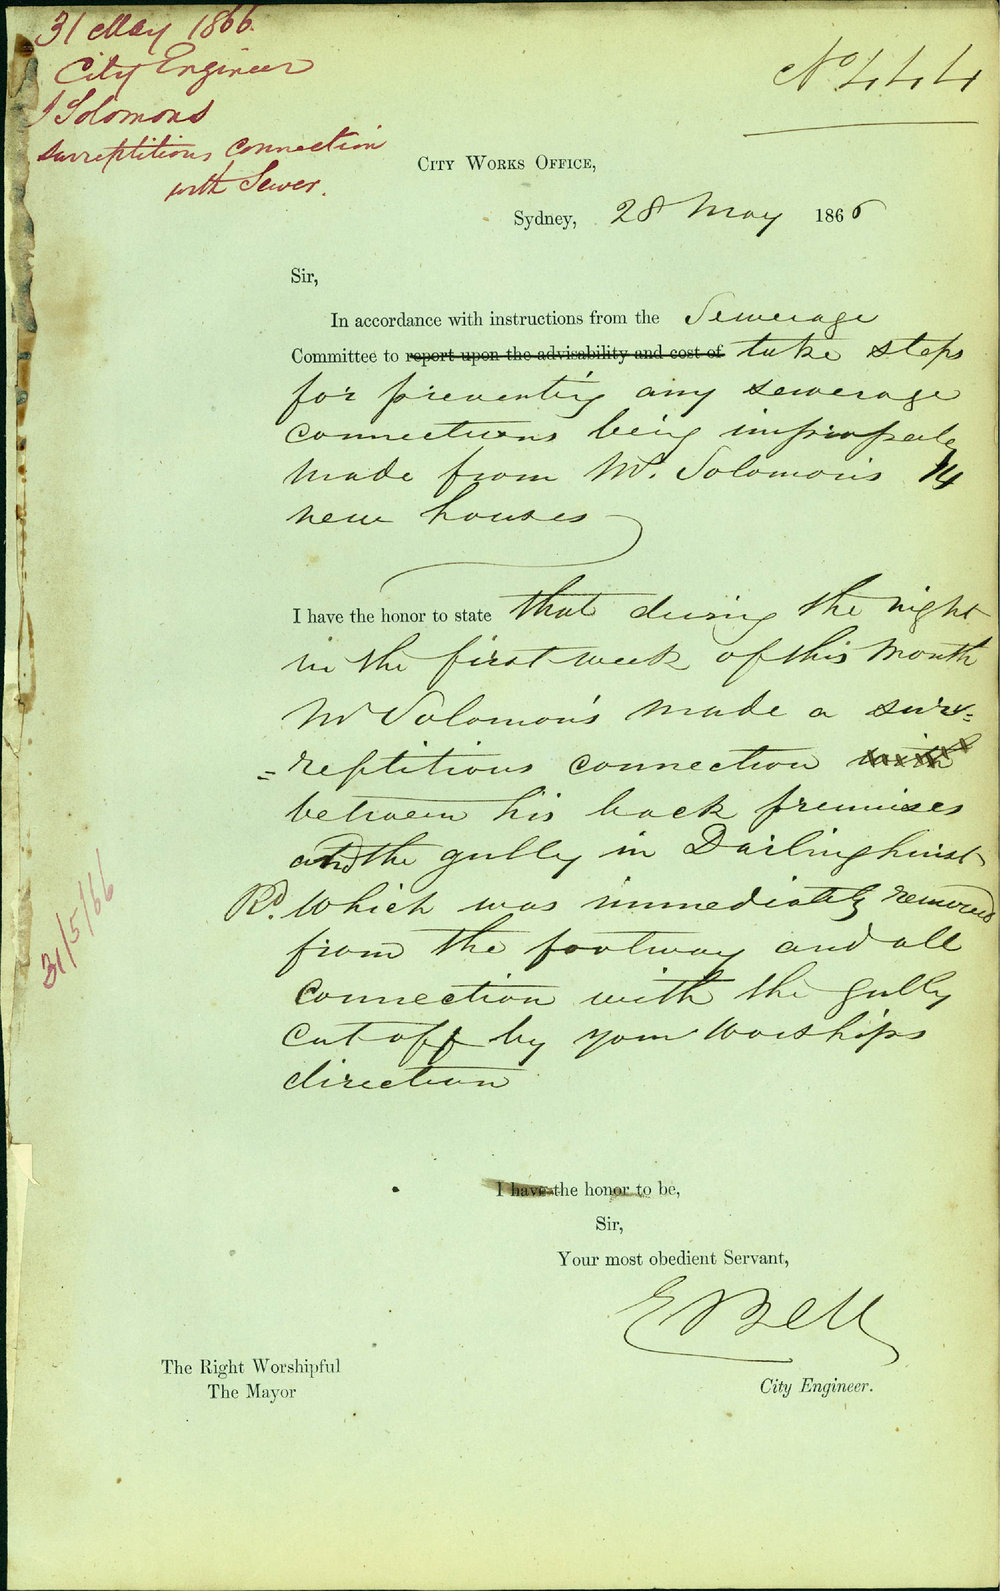 31 May 1866.
City Engineer
J Solomons
surreptitious connection
with Sewer.
No 444
CITY WORKS OFFICE,
Sydney, 28 May 1866
Sir,
In accordance with instructions from the Sewerage
Committee to report upon the advisability and cost of take steps
for preventing any sewerage
connections being improperly
made from Mr. Solomon's 14
new houses
I have the honor to state that during the night
in the first week of this month
Mr Solomon's made a surr=
=reptitious connection with
between his back premises
and the gully in Darlinghurst
Rd. which was immediately removed
from the footway and all
connection with the gully
cut off by your Worships
direction
31/5/66
I have the honor to be,
Sir,
Your most obedient Servant,
E Bell
City Engineer.
The Right Worshipful
The Mayor